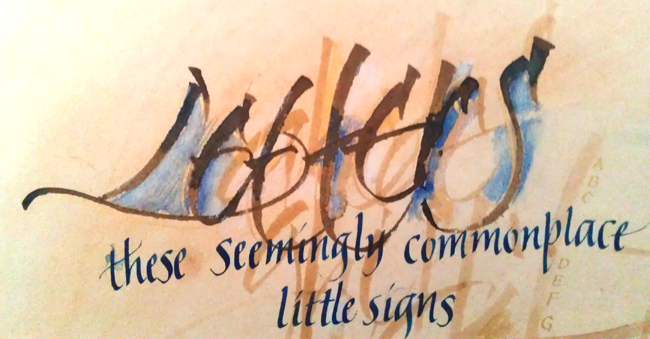 letters
these seemingly commonplace
little signs
A
B
C
D
E
F
G